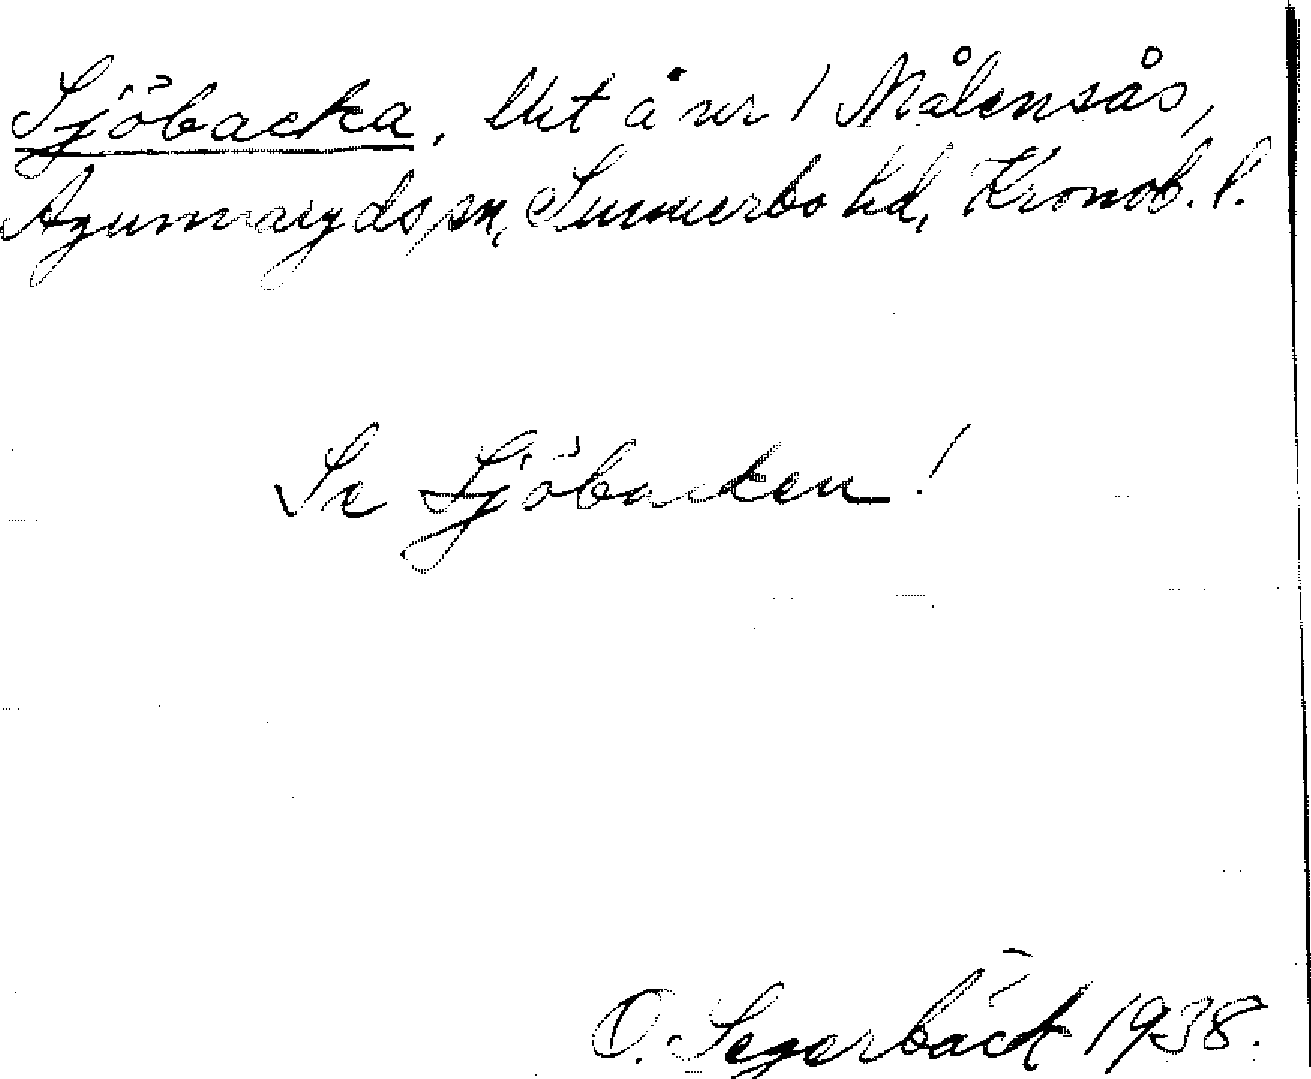 Sjöbacka, Utt å nr 1 Målensås,
Agunnaryds sn, Sunnerbo hd, Kronob. l.
Se Sjöbacken!
O. Segerbäck 1938.